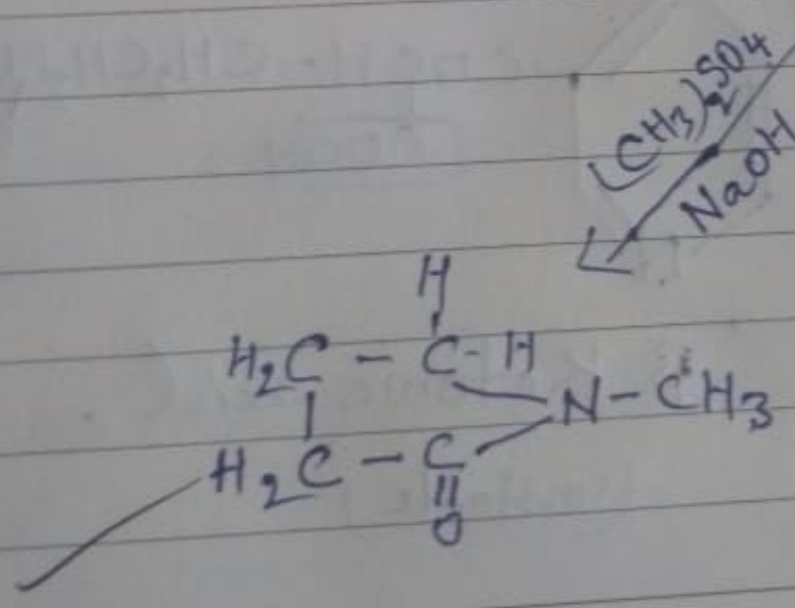 (CH3)2SO4
NaOH
H
H2C - C - H
N - CH3
H2C - C
O